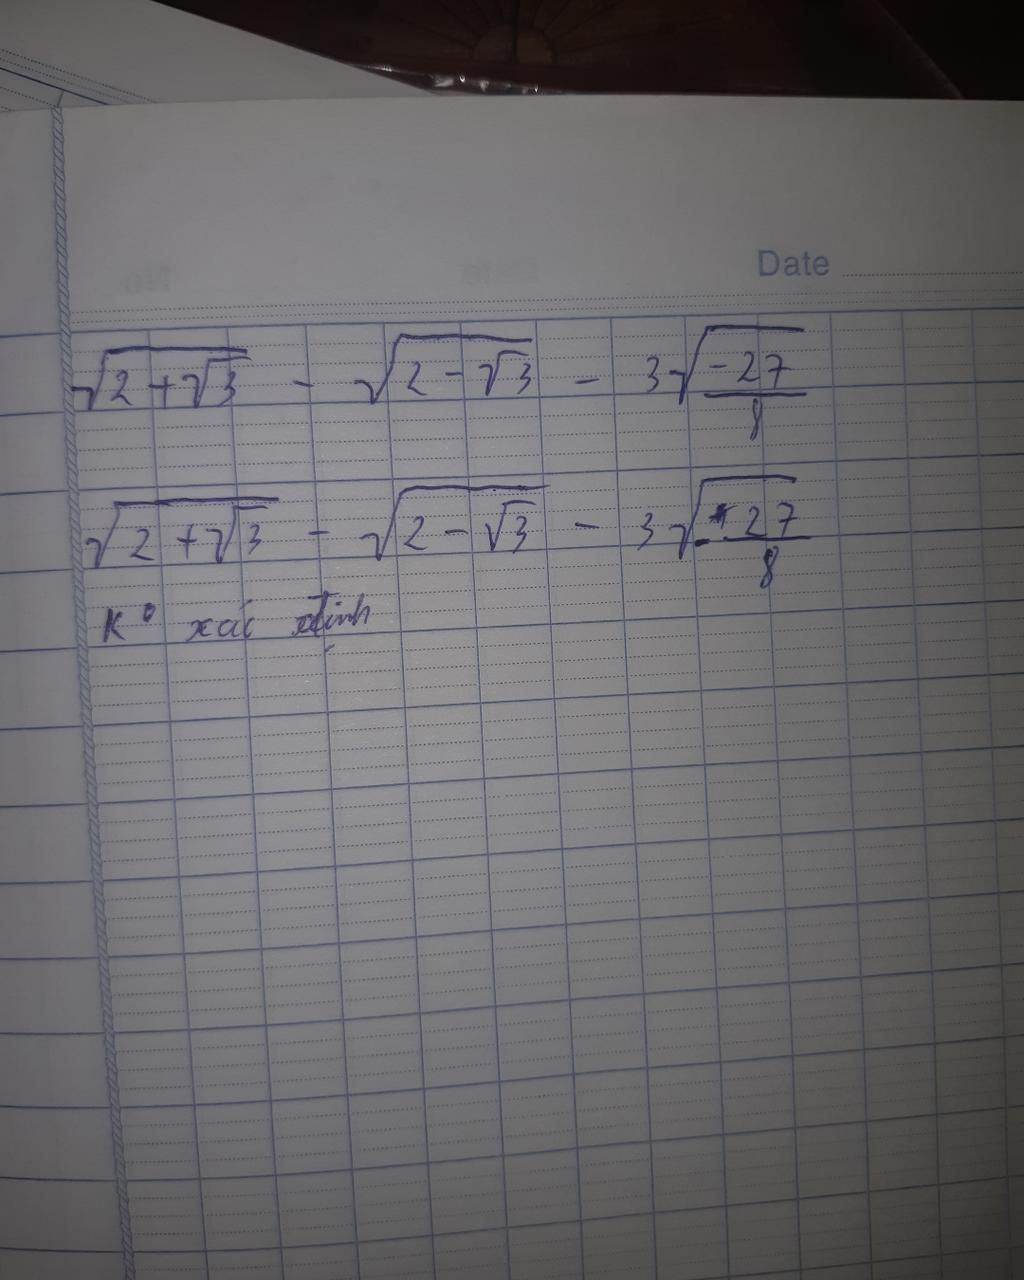 Date
√(2 + √3) - √(2 - √3) - 3√(-27/8)
√(2 + √3) - √(2 - √3) - 3√(-27/8)
K° xác định